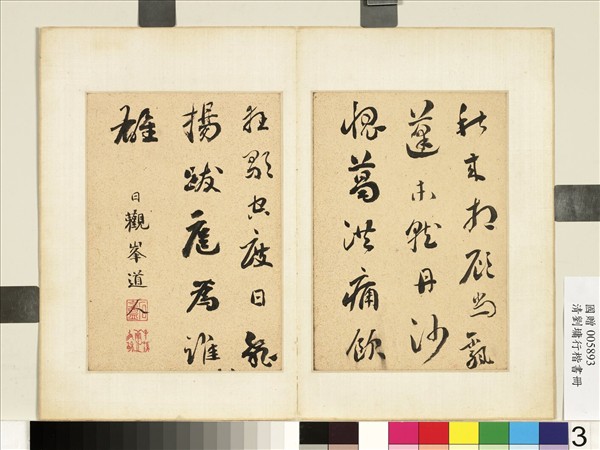 秋來相顧尚飄
蓬未就丹沙
愧葛洪痛飲
狂歌空度日飛
揚跋扈為誰
雄
日觀峯道人
國贈 005893
清劉墉行楷書冊
3